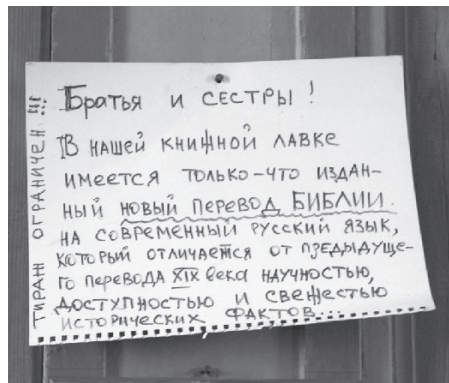 Братья и сестры!
В нашей книжной лавке
имеется только-что издан-
ный новый перевод БИБЛИИ.
на современный русский язык,
который отличается от предыдуще-
го перевода XIX века научностью,
доступностью и свежестью
исторических фактов...
Тираж ограничен!!!